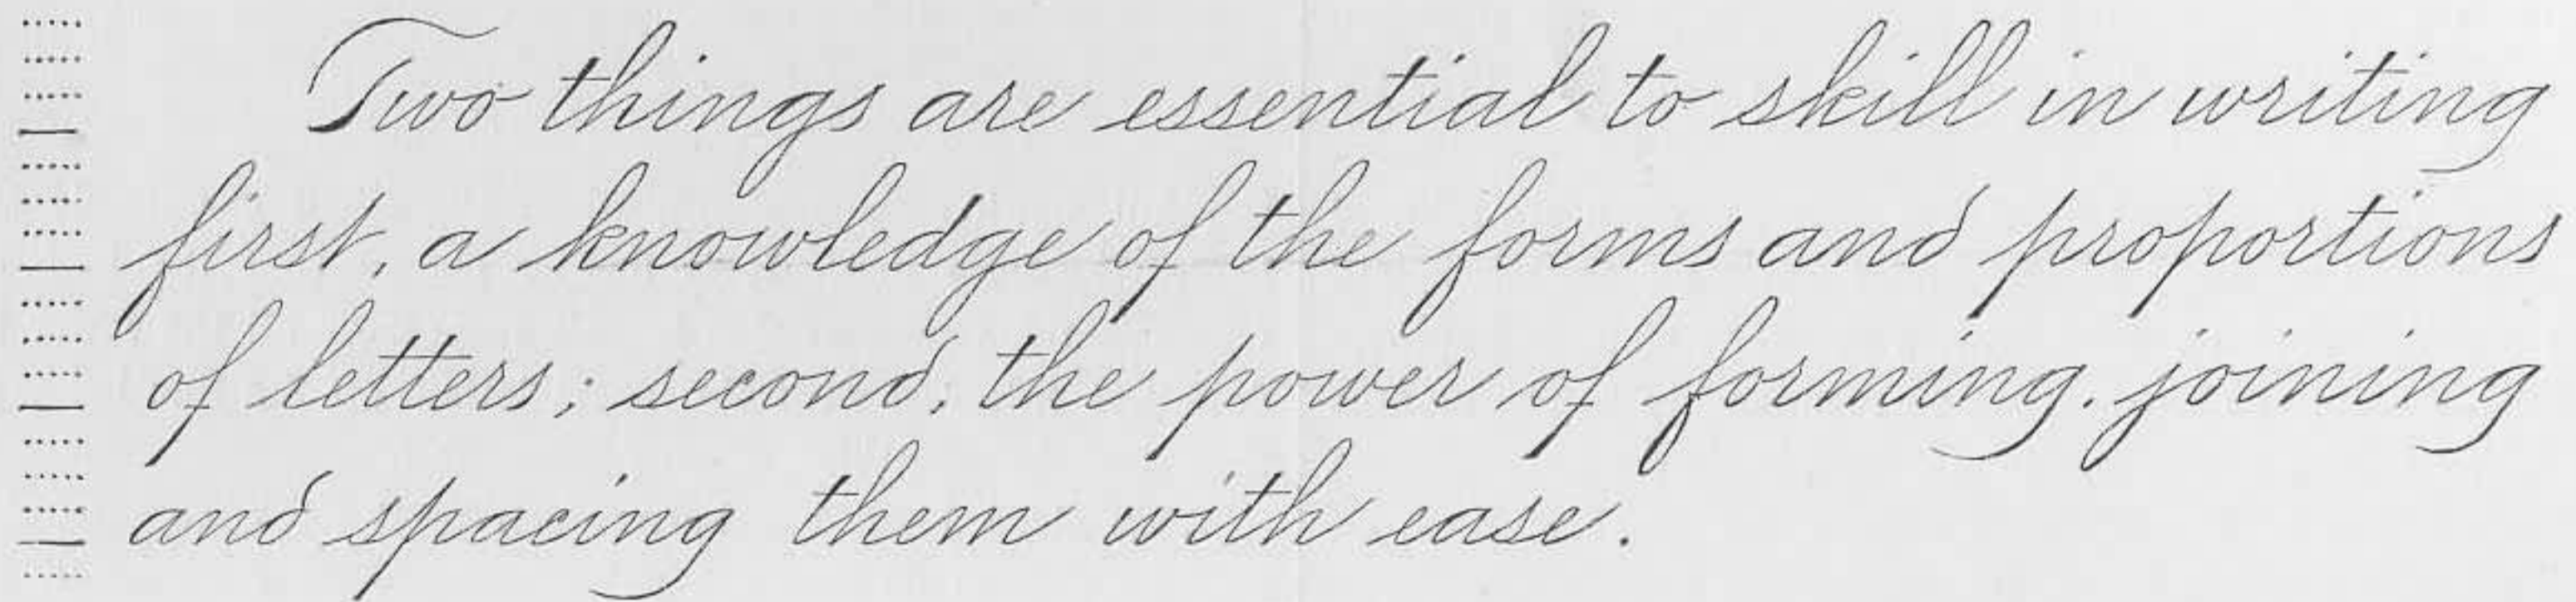 Two things are essential to skill in writing
first, a knowledge of the forms and proportions
of letters; second, the power of forming, joining
and spacing them with ease.